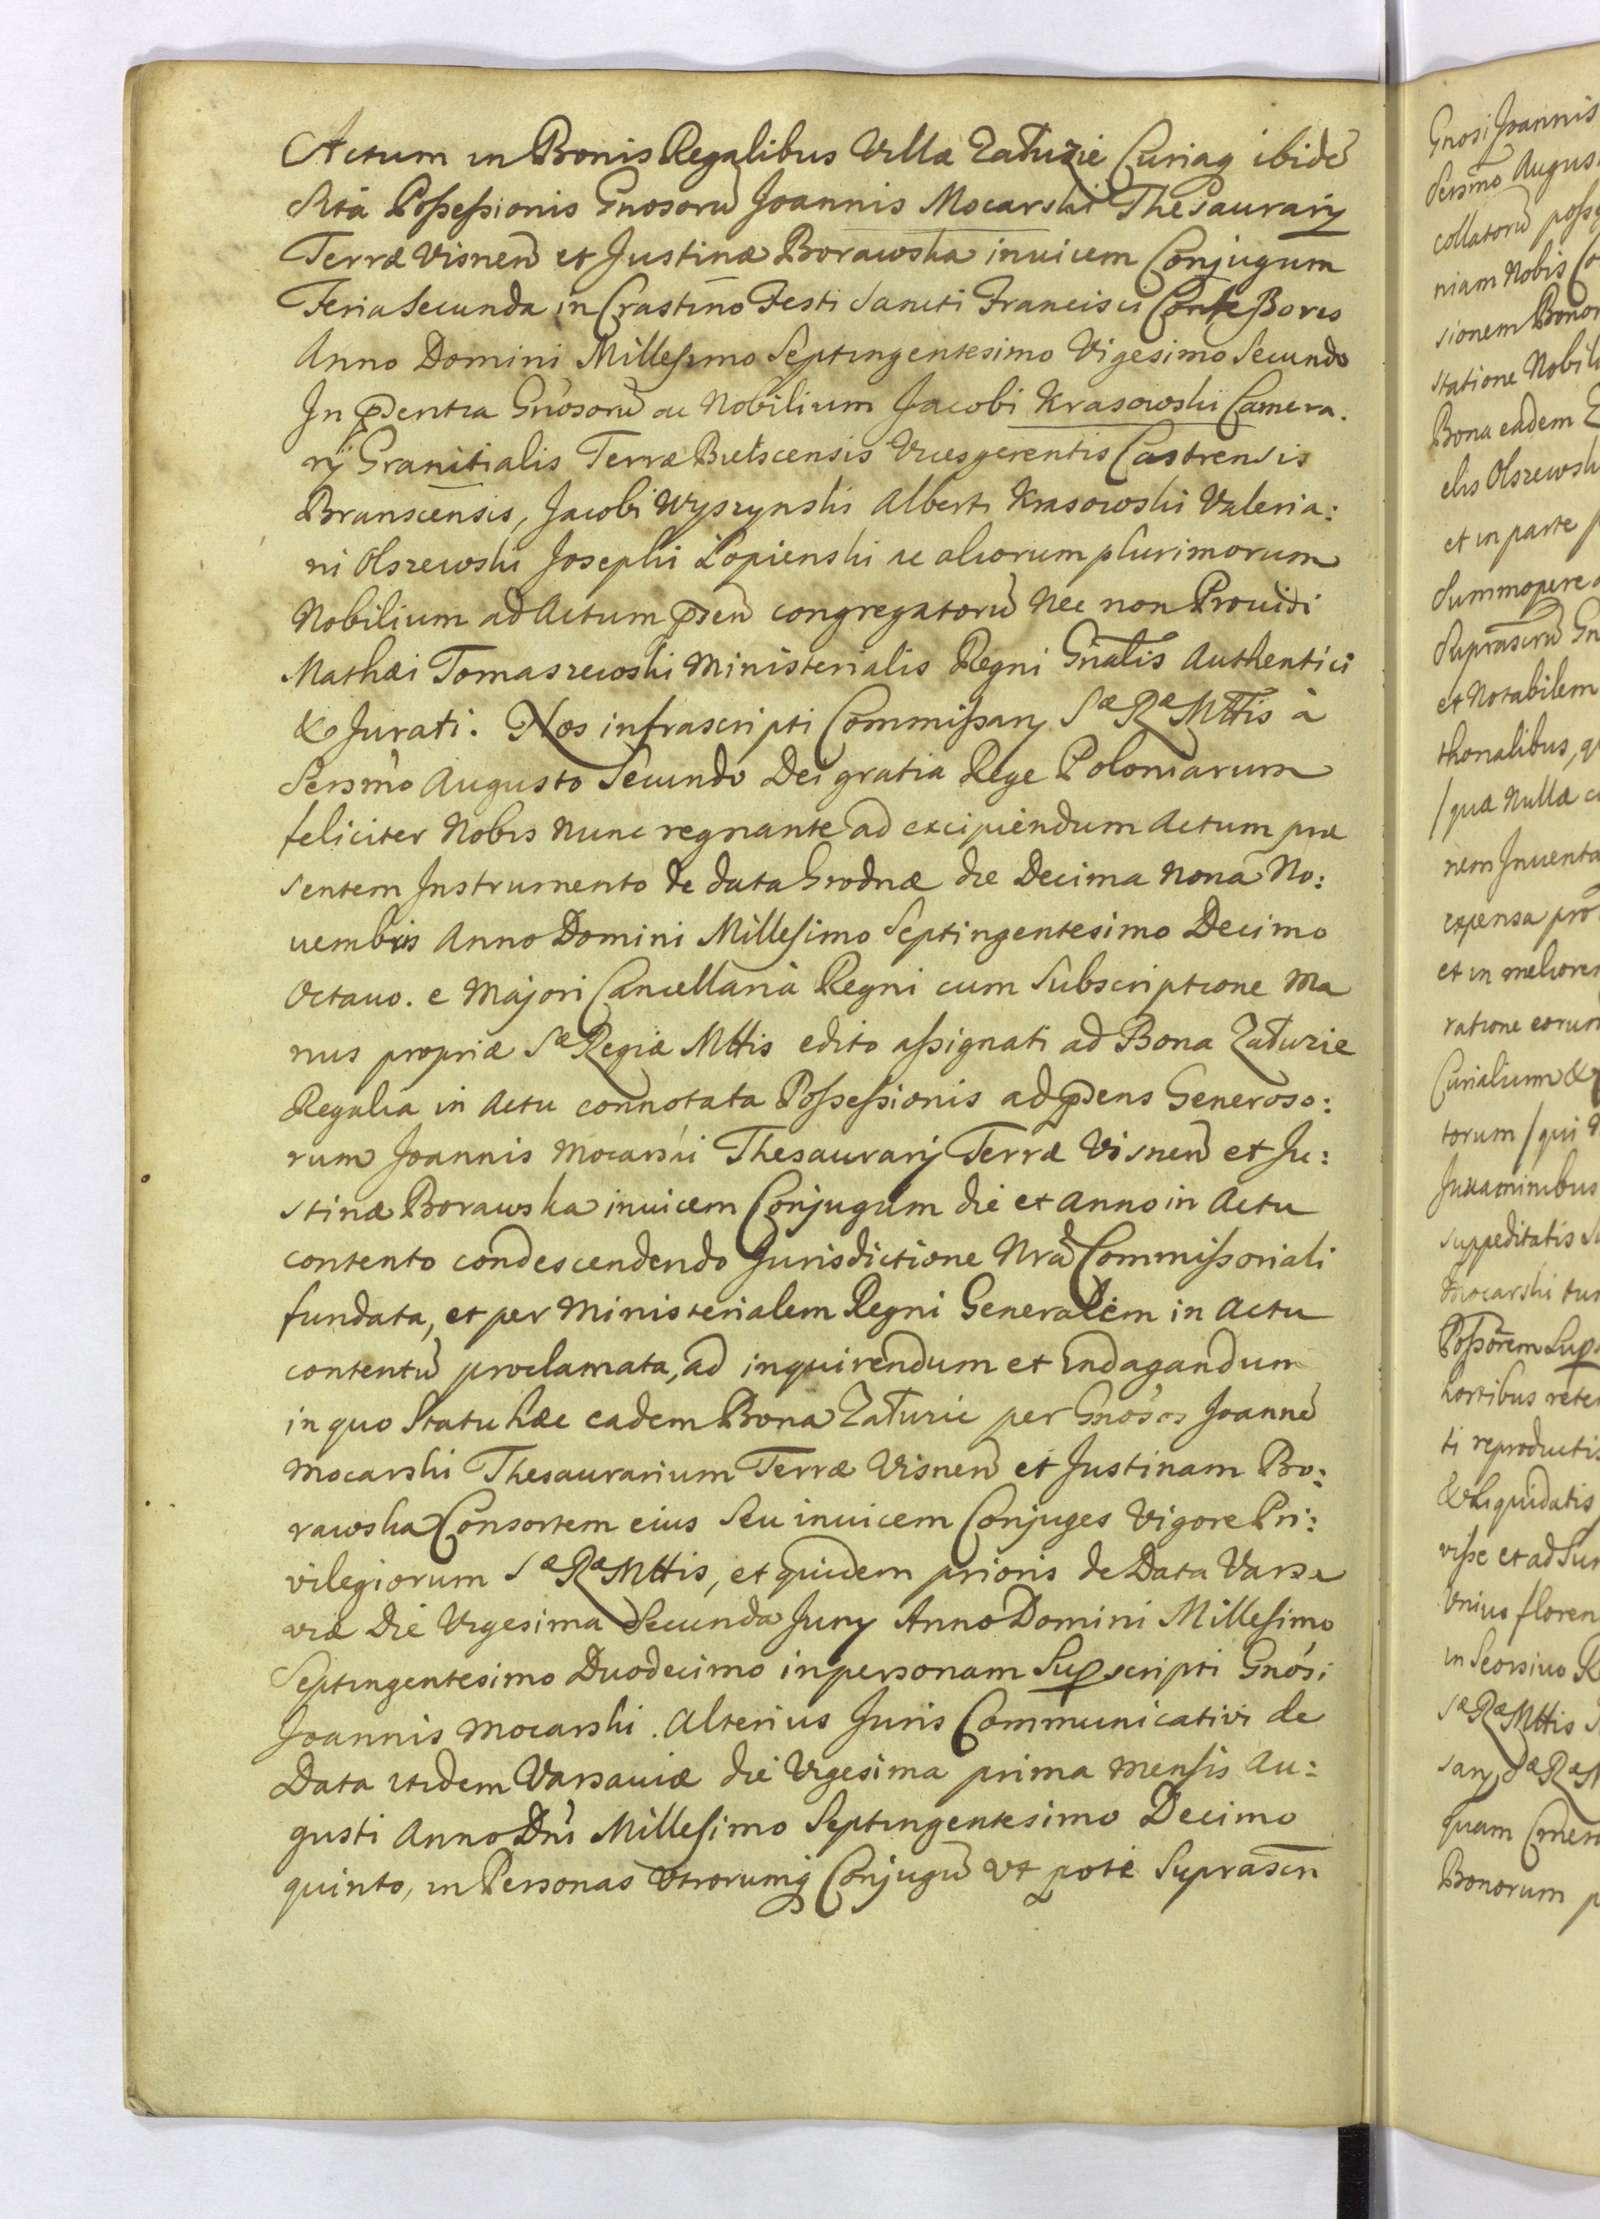 Actum in Bonis Regalibus Villæ Załuzie Curiaq ibidē
Sitâ Possessionis Gnosorū Joannis Mocarski Thesaurarij
Terræ Visnen̄ et Justinæ Borawska inuicem Conjugum
Feria Secunda in Crastino Festi Sancti Francisci Confessoris
Anno Domini Millesimo Septingentesimo Vigesimo Secundo
In p̄sentia Gnosorū ac Nobilium Jacobi Krasowski Camera.
rij Granitialis Terræ Bielscensis Vicesgerentis Castrensis
Branscensis, Jacobi Wyszynski Alberti Krasowski Valeria:
ni Olszewski Josephi Łopienski ac aliorum plurimorum
Nobilium ad Actum p̄sen̄ congregatorū Nec non Prouidi
Mathæi Tomaszewski Ministerialis Regni Gn̄alis Authentici
& Jurati. Nos infrascripti Commissarij Sæ Ræ Mttis à
Sersm̄o Augusto Secundo Dei gratia Rege Poloniarum
feliciter Nobis Nunc regnante ad excipiendum Actum præ
sentem Instrumento de data Grodnæ die Decima Nona No:
uembris Anno Domini Millesimo Septingentesimo Decimo
Octauo. e Majori Cancellaria Regni cum Subscriptione Ma
nus propriæ Sæ Regiæ Mttis edito assignati ad Bona Załuzie
Regalia in Actu connotata Possessionis ad p̄sens Generoso:
rum Joannis Mocarski Thesaurarij Terræ Visnen̄ et Ju:
stinæ Borawska inuicem Conjugum die et Anno in Actu
contento condescendendo Jurisdictione Nrā Commissoriali
fundata, et per Ministerialem Regni Generalem in Actu
contentū proclamata, ad inquirendum et Indagandum
in quo Statu hæc eadem Bona Załuzie per Gnosos Joannē
Mocarski Thesaurarium Terræ Visnen̄ et Justinam Bo:
rawska Consortem eius Seu inuicem Conjuges Vigore Pri:
vilegiorum Sæ Ræ Mttis, et quidem prioris de Data Varsa
viæ Die Vigesima Secunda Junij Anno Domini Millesimo
Septingentesimo Duodecimo in personam Sup̄scripti Gnosi
Joannis Mocarski. Alterius Juris Communicativi de
Data itidem Varsauiæ die Vigesima prima Mensis Au:
gusti Anno Dn̄i Millesimo Septingentesimo Decimo
quinto, in Personas Vtrorumq Conjugū Vt pote Suprascri
Gnosi Joannis
Sersm̄o Augus
collatorū
niam Nobis
sionem Bonor
statione Nobili
Bona eadem
elis Olszewski
et in parte
Summopere
Suprascrū Gn
et Notabilem
thonalibus,
/quæ Nullæ
nem Inuenta
expensa pro
et in meliorem
ratione eorum
Curialium &
torum /qui
Juxaminibus
suppeditatis
Mocarski
Possorem Sup
hortibus
ti reproductis
& Liquidatis
visse et ad
Vnius floren
in Seorsivo
Sæ Ræ Mttis
sarij Sæ Ræ
quam
Bonorum